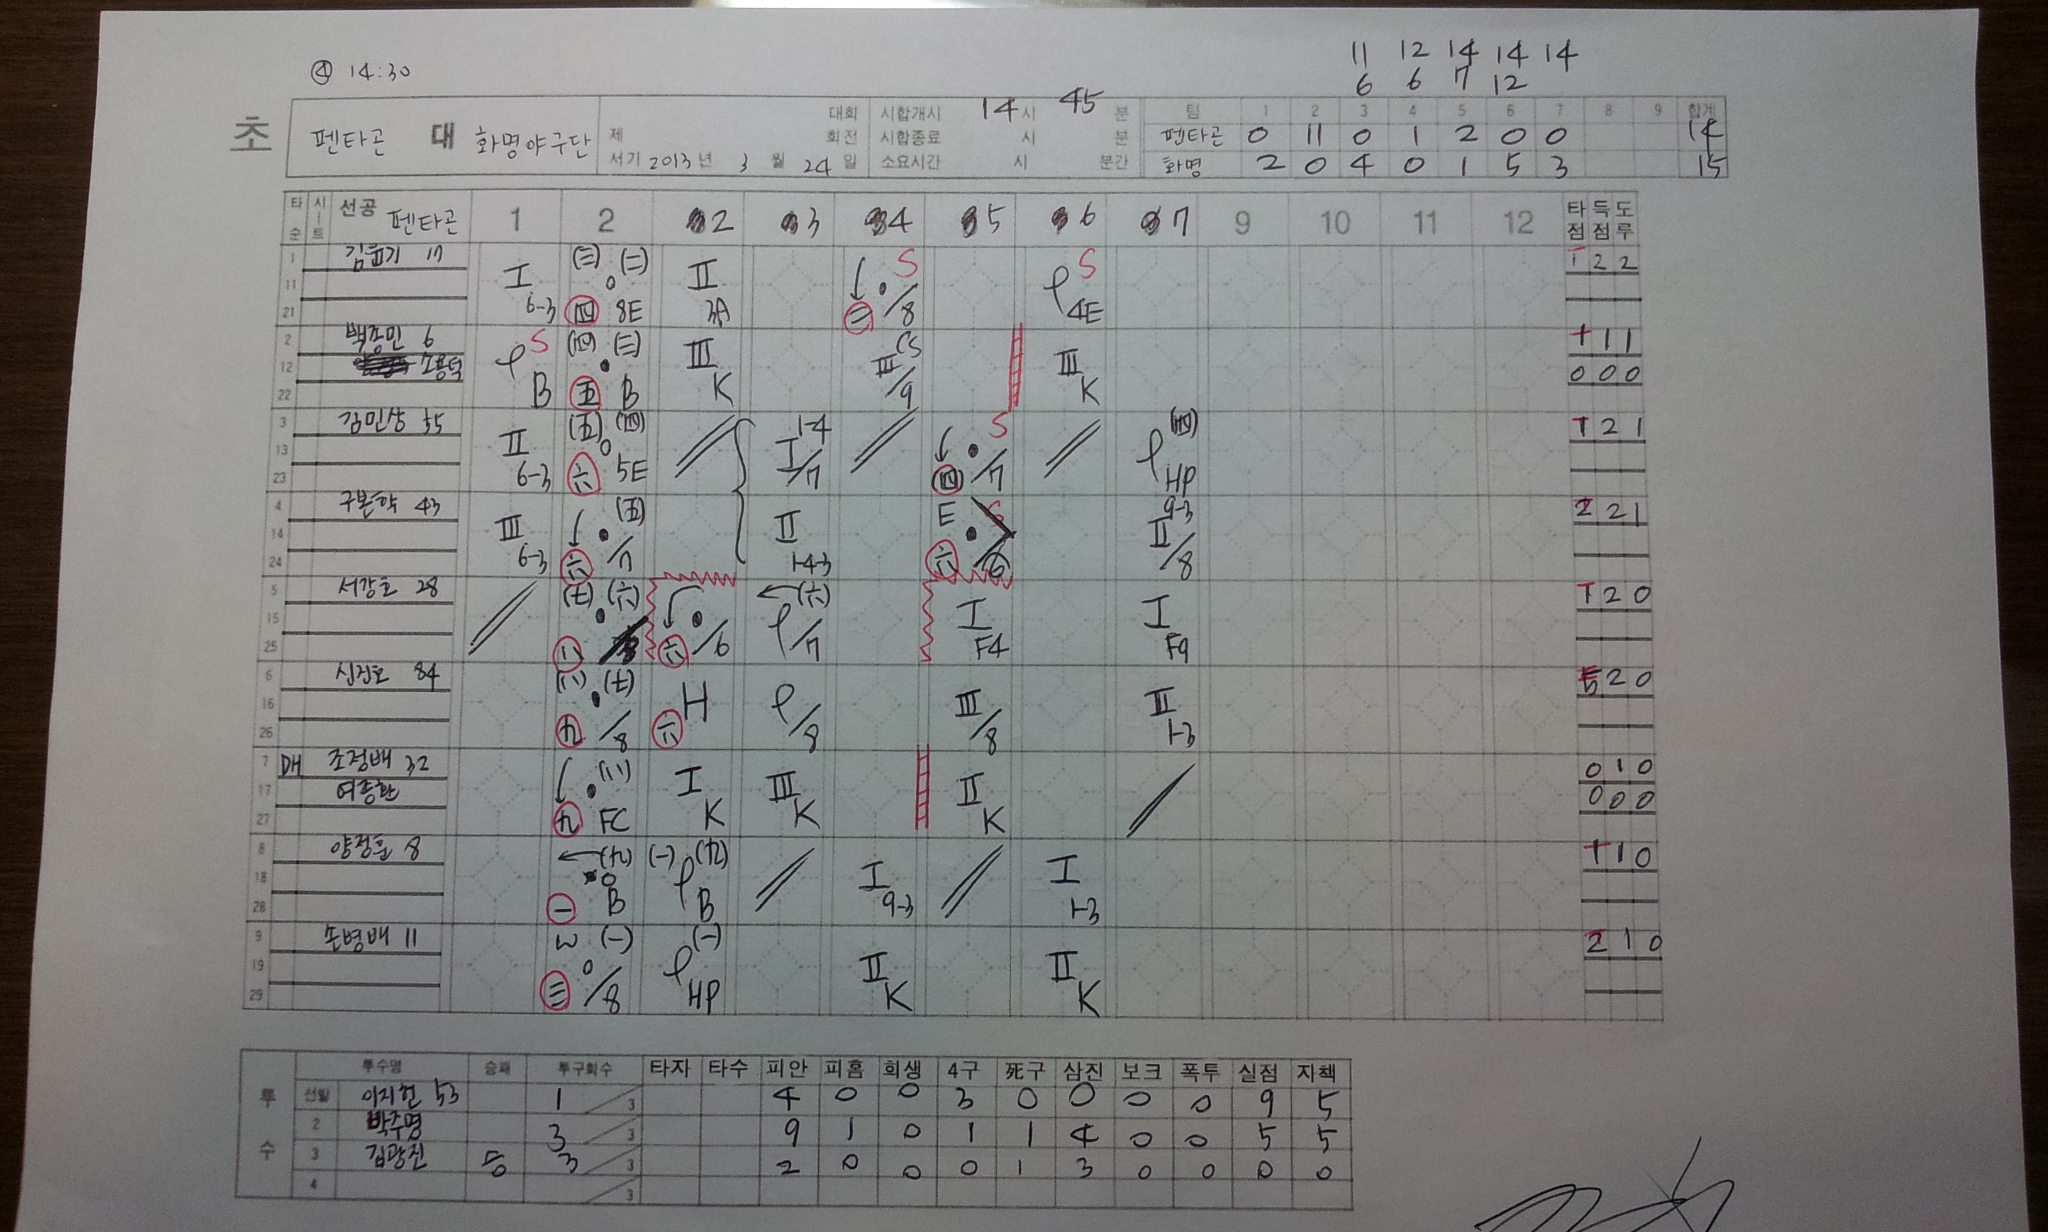 ④ 14:30
11 12 14 14 14
6 6 7 12
초 펜타곤 대 화명야구단
대회
제 회전
서기 2013년 3월 24일
시합개시 14시 45분
시합종료 시 분
소요시간 시 분간
팀 1 2 3 4 5 6 7 8 9 합계
펜타곤 0 11 0 1 2 0 0 14
화명 2 0 4 0 1 5 3 15
타순 시트 선공 펜타곤 1 2 2 3 4 5 6 7 9 10 11 12 타점 득점 도루
1 11 21
6-3 8E 3A /8 S 4E S
2 2
2 백종민 6
12 22
S B B K CS /9 K
1 1
0 0 0
3 김민상 35
13 23
6-3 5E 1-4 /7 S /7 HP
2 1
4 구본학 43
14 24
6-3 /7 1-4-3 E 9-3 /8
2 2 1
5 서강호 28
15 25
/6 /7 F4 F9
2 0
6 신진호 84
16 26
/8 H /8 /8 1-3
2 0
7 DH 조정배 32
17 여종환
27
FC K K K
0 1 0
0 0 0
8 양정훈 8
18 28
B B 9-3 1-3
1 0
9 손병배 11
19 29
W /8 HP K K
2 1 0
투수 투수명 승패 투구회수 타자 타수 피안 피홈 희생 4구 死구 삼진 보크 폭투 실점 자책
선발 이지헌 53 1 /3 4 0 0 3 0 0 0 0 9 5
2 박주명 3 /3 9 1 0 1 1 4 0 0 5 5
3 김광진 승 3 /3 2 0 0 0 1 3 0 0 0 0
4 /3